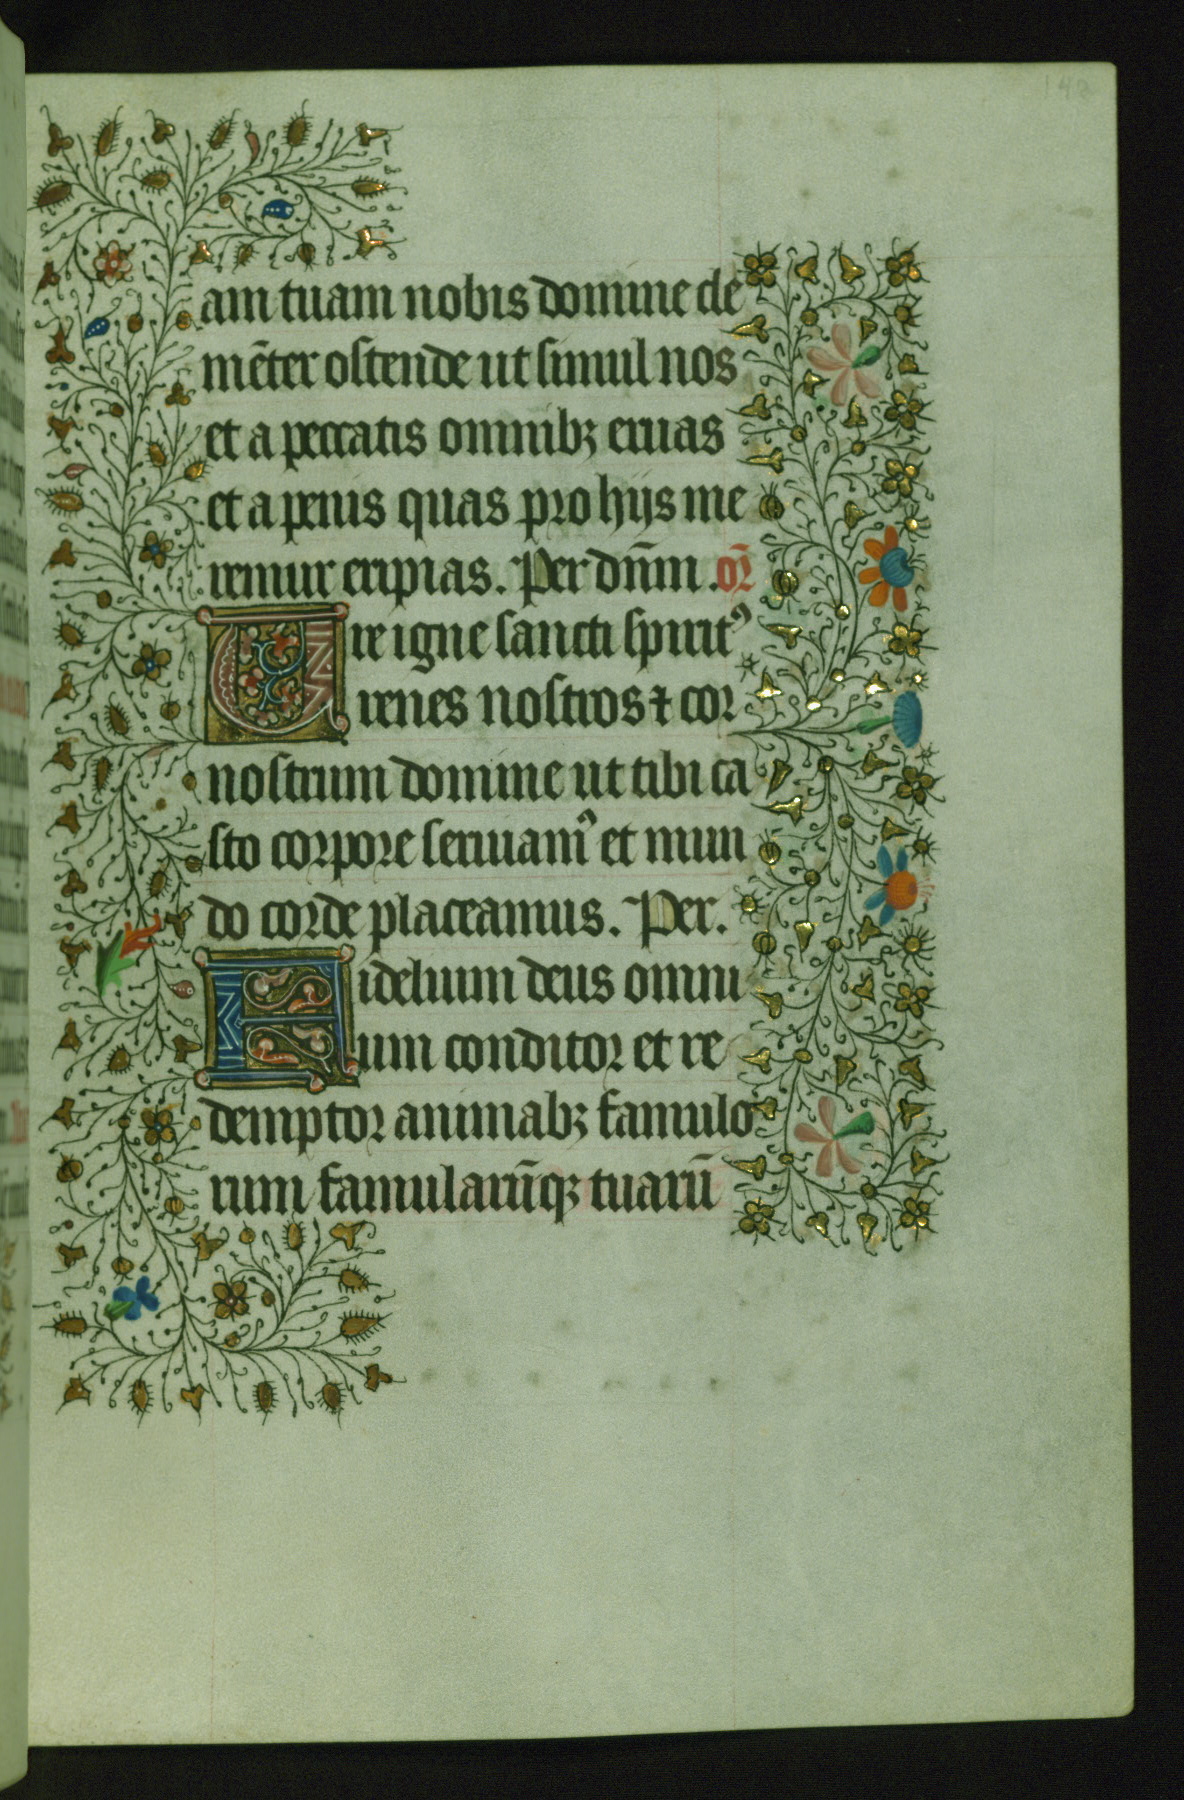 am tuam nobis domine cle
mēter ostende ut simul nos
et a peccatis omnibꝫ eruas
et a penis quas pro hijs me
remur eripias. Per dn̄m. or̄
Ure igne sancti spiritꝰ
renes nostros ⁊ cor
nostrum domine ut tibi ca
sto corpore seruamꝰ et mun
do corde placeamus. Per.
Fidelium deus omni
um conditor et re
demptor animabꝫ famulo
rum famularūqꝫ tuarū